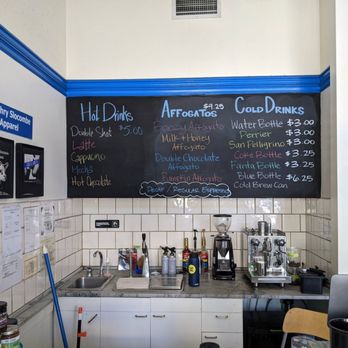 hry Slocombe
Apparel
Hot Drinks
Double Shot $5.00
Latte
Cappucino
Mocha
Hot Chocolate
AFFOGATOS $9.25
Affogato
Milk + Honey
Affogato
Double Chocolate
Affogato
Affogato
Decaf / Regular Espresso
COLD DRINKS
Water Bottle $3.00
Perrier $3.00
San Pellegrino $3.00
Coke Bottle $3.25
Fanta Bottle $3.25
Blue Bottle $6.25
Cold Brew Can